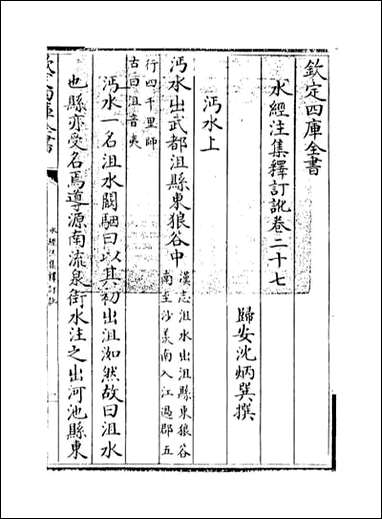 欽定四庫全書
水經注集釋訂訛卷二十七
歸安沈炳巽撰
沔水上
沔水出武都沮縣東狼谷中漢志沮水出沮縣東狼谷
南至沙羡南入江過郡五
行四千里師
古曰沮音夷
沔水一名沮水闞駰曰以其初出沮洳然故曰沮水
也縣亦受名焉導源南流泉街水注之出河池縣東
欽定四庫全書
水經注集釋訂訛